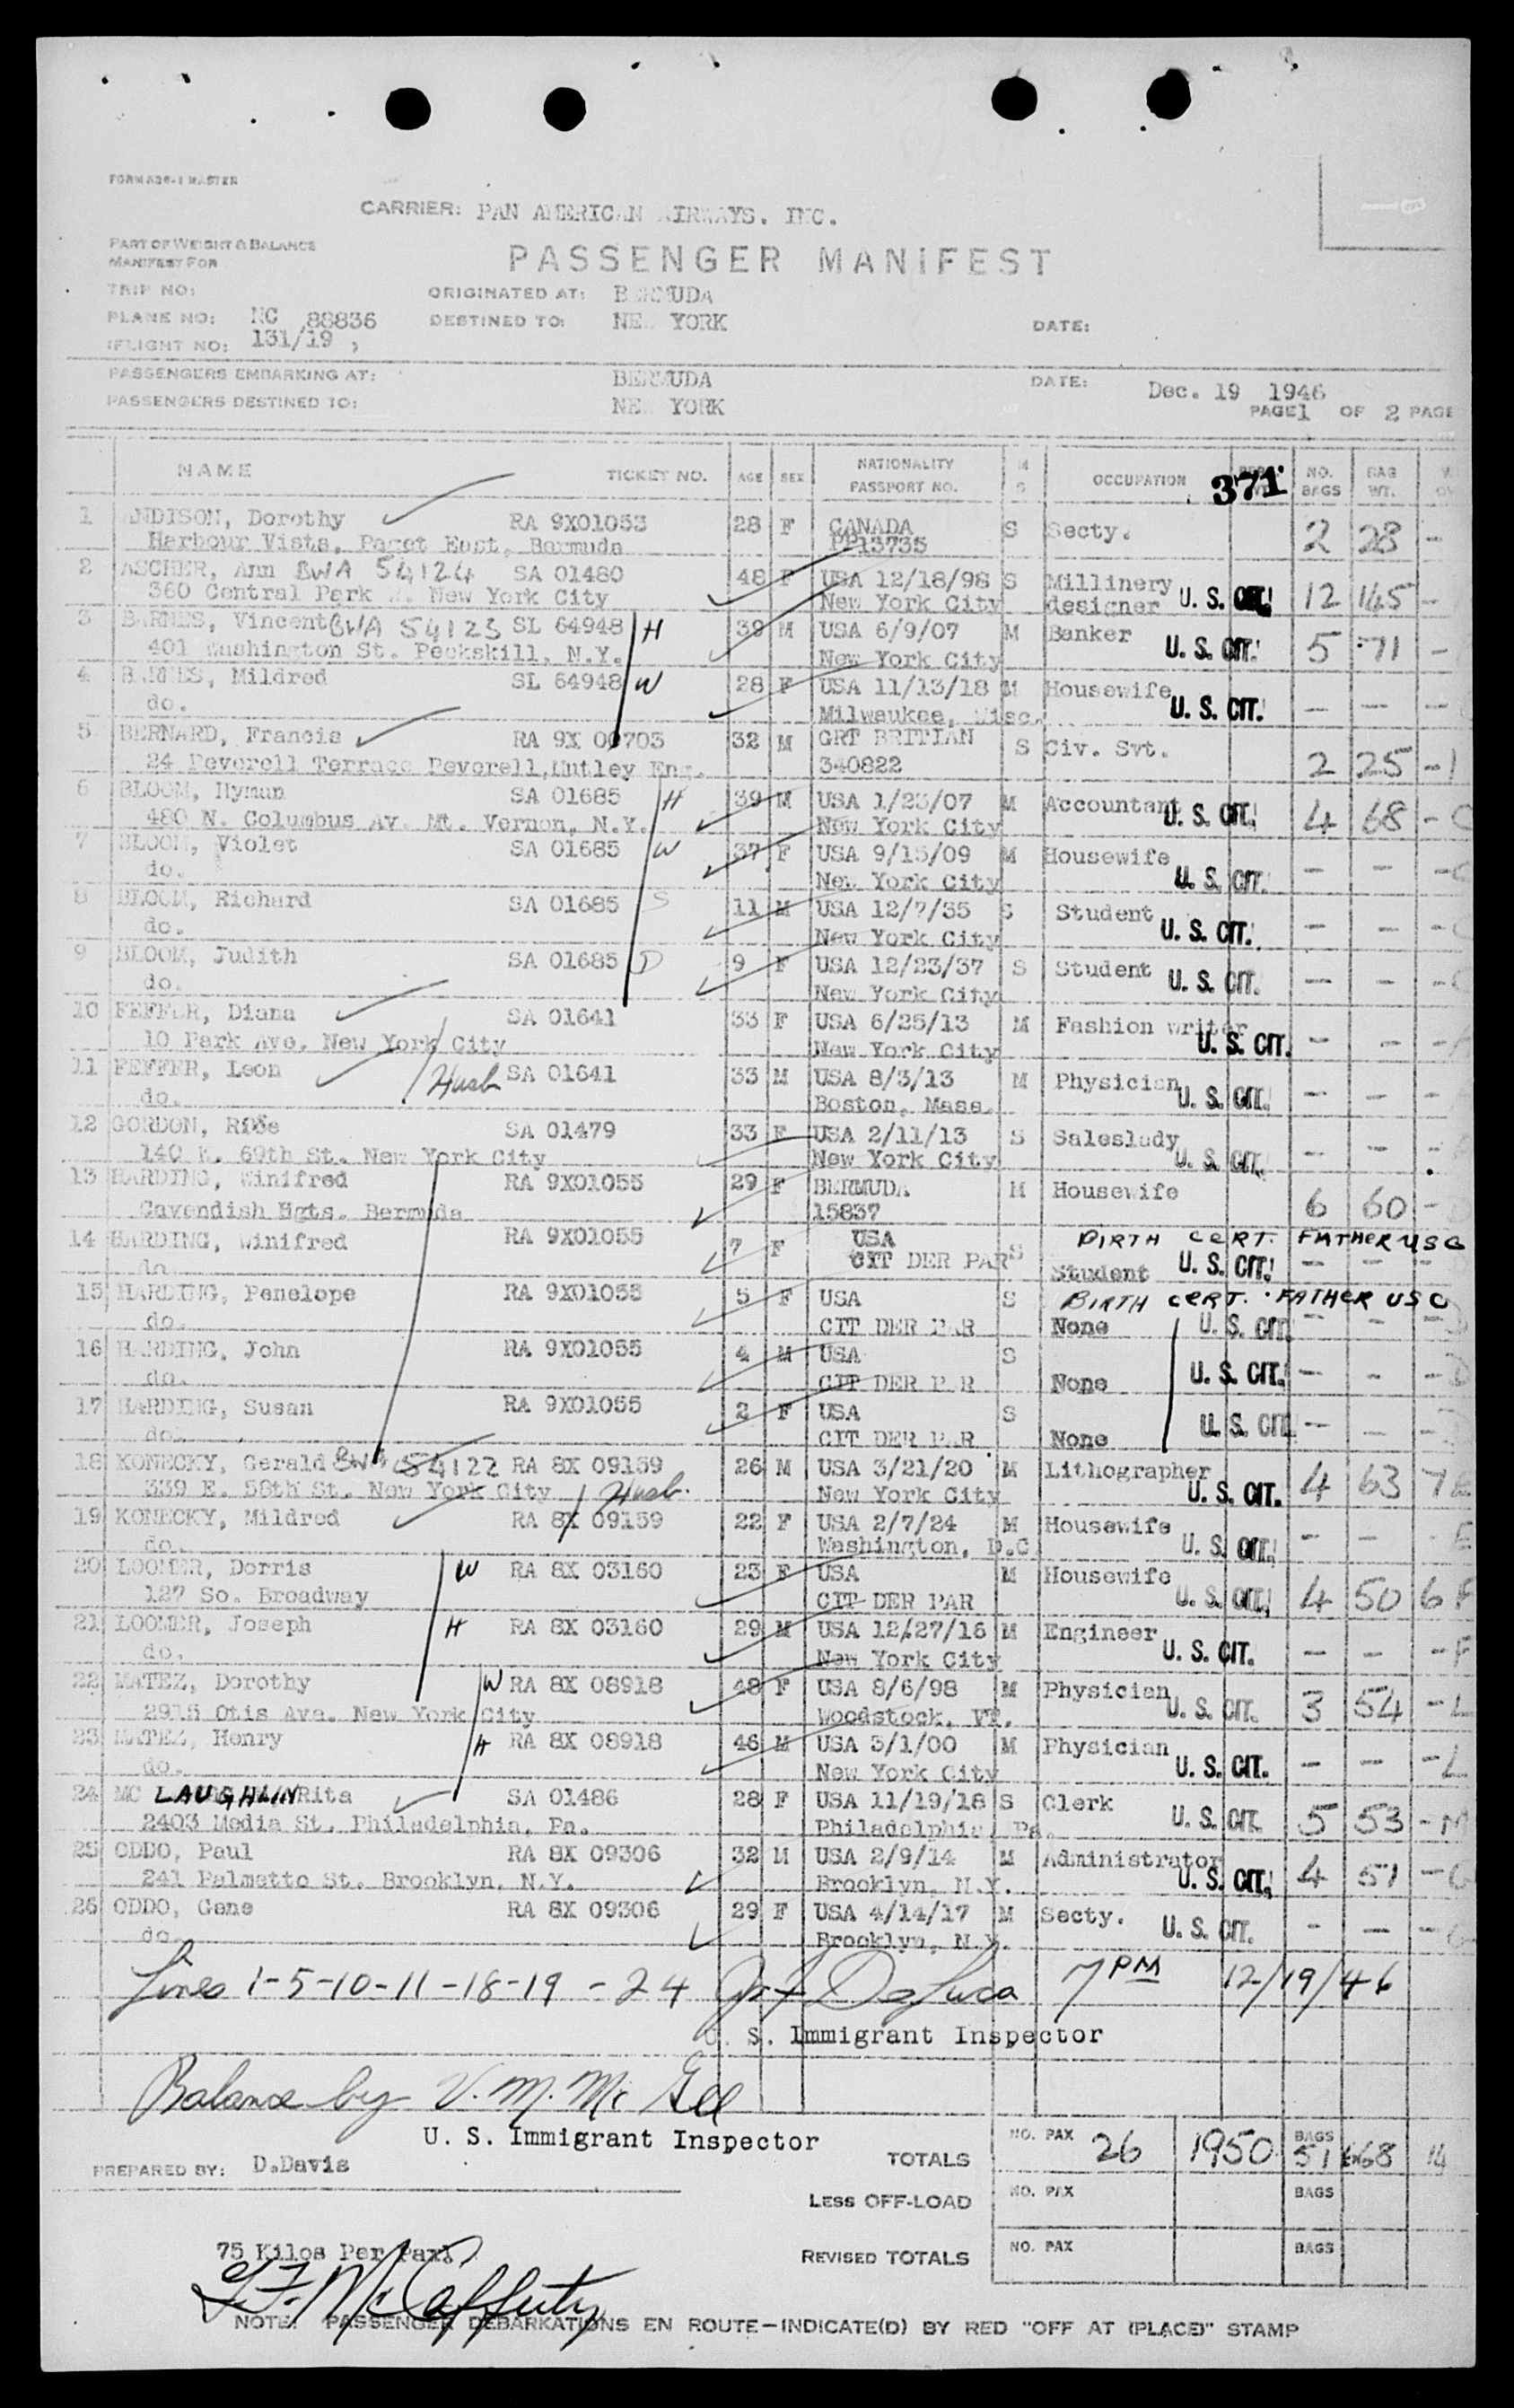 FORM A26-1 MASTER
CARRIER: PAN AMERICAN AIRWAYS. INC.
PART OF WEIGHT & BALANCE
MANIFEST FOR
PASSENGER MANIFEST
TRIP NO:
ORIGINATED AT: BERMUDA
PLANE NO: NC 88836
DESTINED TO: NEW YORK
DATE:
FLIGHT NO: 131/19
PASSENGERS EMBARKING AT: BERMUDA
DATE: Dec. 19 1946
PASSENGERS DESTINED TO: NEW YORK
PAGE 1 OF 2 PAGE
NAME TICKET NO. AGE SEX NATIONALITY PASSPORT NO. M S OCCUPATION 371 NO. BAGS BAG WT.
1 ANDISON, Dorothy RA 9X01053 28 F CANADA S Secty. 2 28 -
Harbour Vista, Paget East, Bermuda PP13735
2 ASCHER, Ann BWA 54124 SA 01480 48 F USA 12/18/98 S Millinery U. S. CIT. 12 145 -
360 Central Park W. New York City New York City designer
3 BARNES, Vincent BWA 54123 SL 64948 H 39 M USA 6/9/07 M Banker U. S. CIT. 5 71 -
401 Washington St. Peekskill, N.Y. New York City
4 BARNES, Mildred SL 64948 W 28 F USA 11/13/18 M Housewife U. S. CIT. - - -
do. Milwaukee, Wisc.
5 BERNARD, Francis RA 9X 00703 32 M GRT BRITIAN S Civ. Svt. 2 25 -
24 Peverell Terrace Peverell, Mutley Eng. 340822
6 BLOOM, Hyman SA 01685 H 39 M USA 1/23/07 M Accountant U. S. CIT. 4 68 - C
480 N. Columbus Av. Mt. Vernon, N.Y. New York City
7 BLOOM, Violet SA 01685 W 37 F USA 9/15/09 M Housewife U. S. CIT. - - - C
do. New York City
8 BLOOM, Richard SA 01685 S 11 M USA 12/7/35 S Student U. S. CIT. - - - C
do. New York City
9 BLOOM, Judith SA 01685 D 9 F USA 12/23/37 S Student U. S. CIT. - - - C
do. New York City
10 FEFFER, Diana SA 01641 33 F USA 6/25/13 M Fashion writer U. S. CIT. - - -
10 Park Ave. New York City New York City
11 FEFFER, Leon Husb SA 01641 33 M USA 8/3/13 M Physician U. S. CIT. - - -
do. Boston, Mass.
12 GORDON, Rose SA 01479 33 F USA 2/11/13 S Saleslady U. S. CIT. - - -
140 E. 69th St. New York City New York City
13 HARDING, Winifred RA 9X01055 29 F BERMUDA M Housewife 6 60 -
Cavendish Hgts. Bermuda 15837
14 HARDING, Winifred RA 9X01055 7 F USA S BIRTH CERT. FATHER USC
do. CIT DER PAR Student U. S. CIT. - - -
15 HARDING, Penelope RA 9X01055 5 F USA S BIRTH CERT. FATHER USC
do. CIT DER PAR None U. S. CIT. - - - D
16 HARDING, John RA 9X01055 4 M USA S U. S. CIT. - - - D
do. CIT DER PAR None
17 HARDING, Susan RA 9X01055 2 F USA S U. S. CIT. - - -
do. CIT DER PAR None
18 KONECKY, Gerald BWA 54122 RA 8X 09159 26 M USA 3/21/20 M Lithographer U. S. CIT. 4 63 7 E
339 E. 58th St. New York City Husb. New York City
19 KONECKY, Mildred RA 8X 09159 22 F USA 2/7/24 M Housewife U. S. CIT. - - - E
do. Washington, D.C
20 LOOMER, Dorris W RA 8X 03160 23 F USA M Housewife U. S. CIT. 4 50 6 F
127 So. Broadway CIT DER PAR
21 LOOMER, Joseph H RA 8X 03160 29 M USA 12/27/16 M Engineer U. S. CIT. - - - F
do. New York City
22 MATEZ, Dorothy W RA 8X 08918 48 F USA 8/6/98 M Physician U. S. CIT. 3 54 - L
2915 Otis Ave. New York City Woodstock, VT.
23 MATEZ, Henry H RA 8X 08918 46 M USA 3/1/00 M Physician U. S. CIT. - - - L
do. New York City
24 MC LAUGHLIN Rita SA 01486 28 F USA 11/19/18 S Clerk U. S. CIT. 5 53 - M
2403 Media St. Philadelphia, Pa. Philadelphia, Pa.
25 ODDO, Paul RA 8X 09306 32 M USA 2/9/14 M Administrator U. S. CIT. 4 51 - G
241 Palmetto St. Brooklyn, N.Y. Brooklyn, N.Y.
26 ODDO, Gene RA 8X 09306 29 F USA 4/14/17 M Secty. U. S. CIT. - - - G
do. Brooklyn, N.Y.
Lines 1-5-10-11-18-19-24 De Luca 7 PM 12/19/46
U. S. Immigrant Inspector
Balance by V. M. Mc Gee
U. S. Immigrant Inspector
TOTALS NO. PAX 26 1950 BAGS 51 668 14
PREPARED BY: D.Davis
LESS OFF-LOAD NO. PAX BAGS
75 Kilos Per Pax.
REVISED TOTALS NO. PAX BAGS
McCafferty
NOTE: PASSENGER DEBARKATIONS EN ROUTE-INDICATE(D) BY RED "OFF AT (PLACE)" STAMP